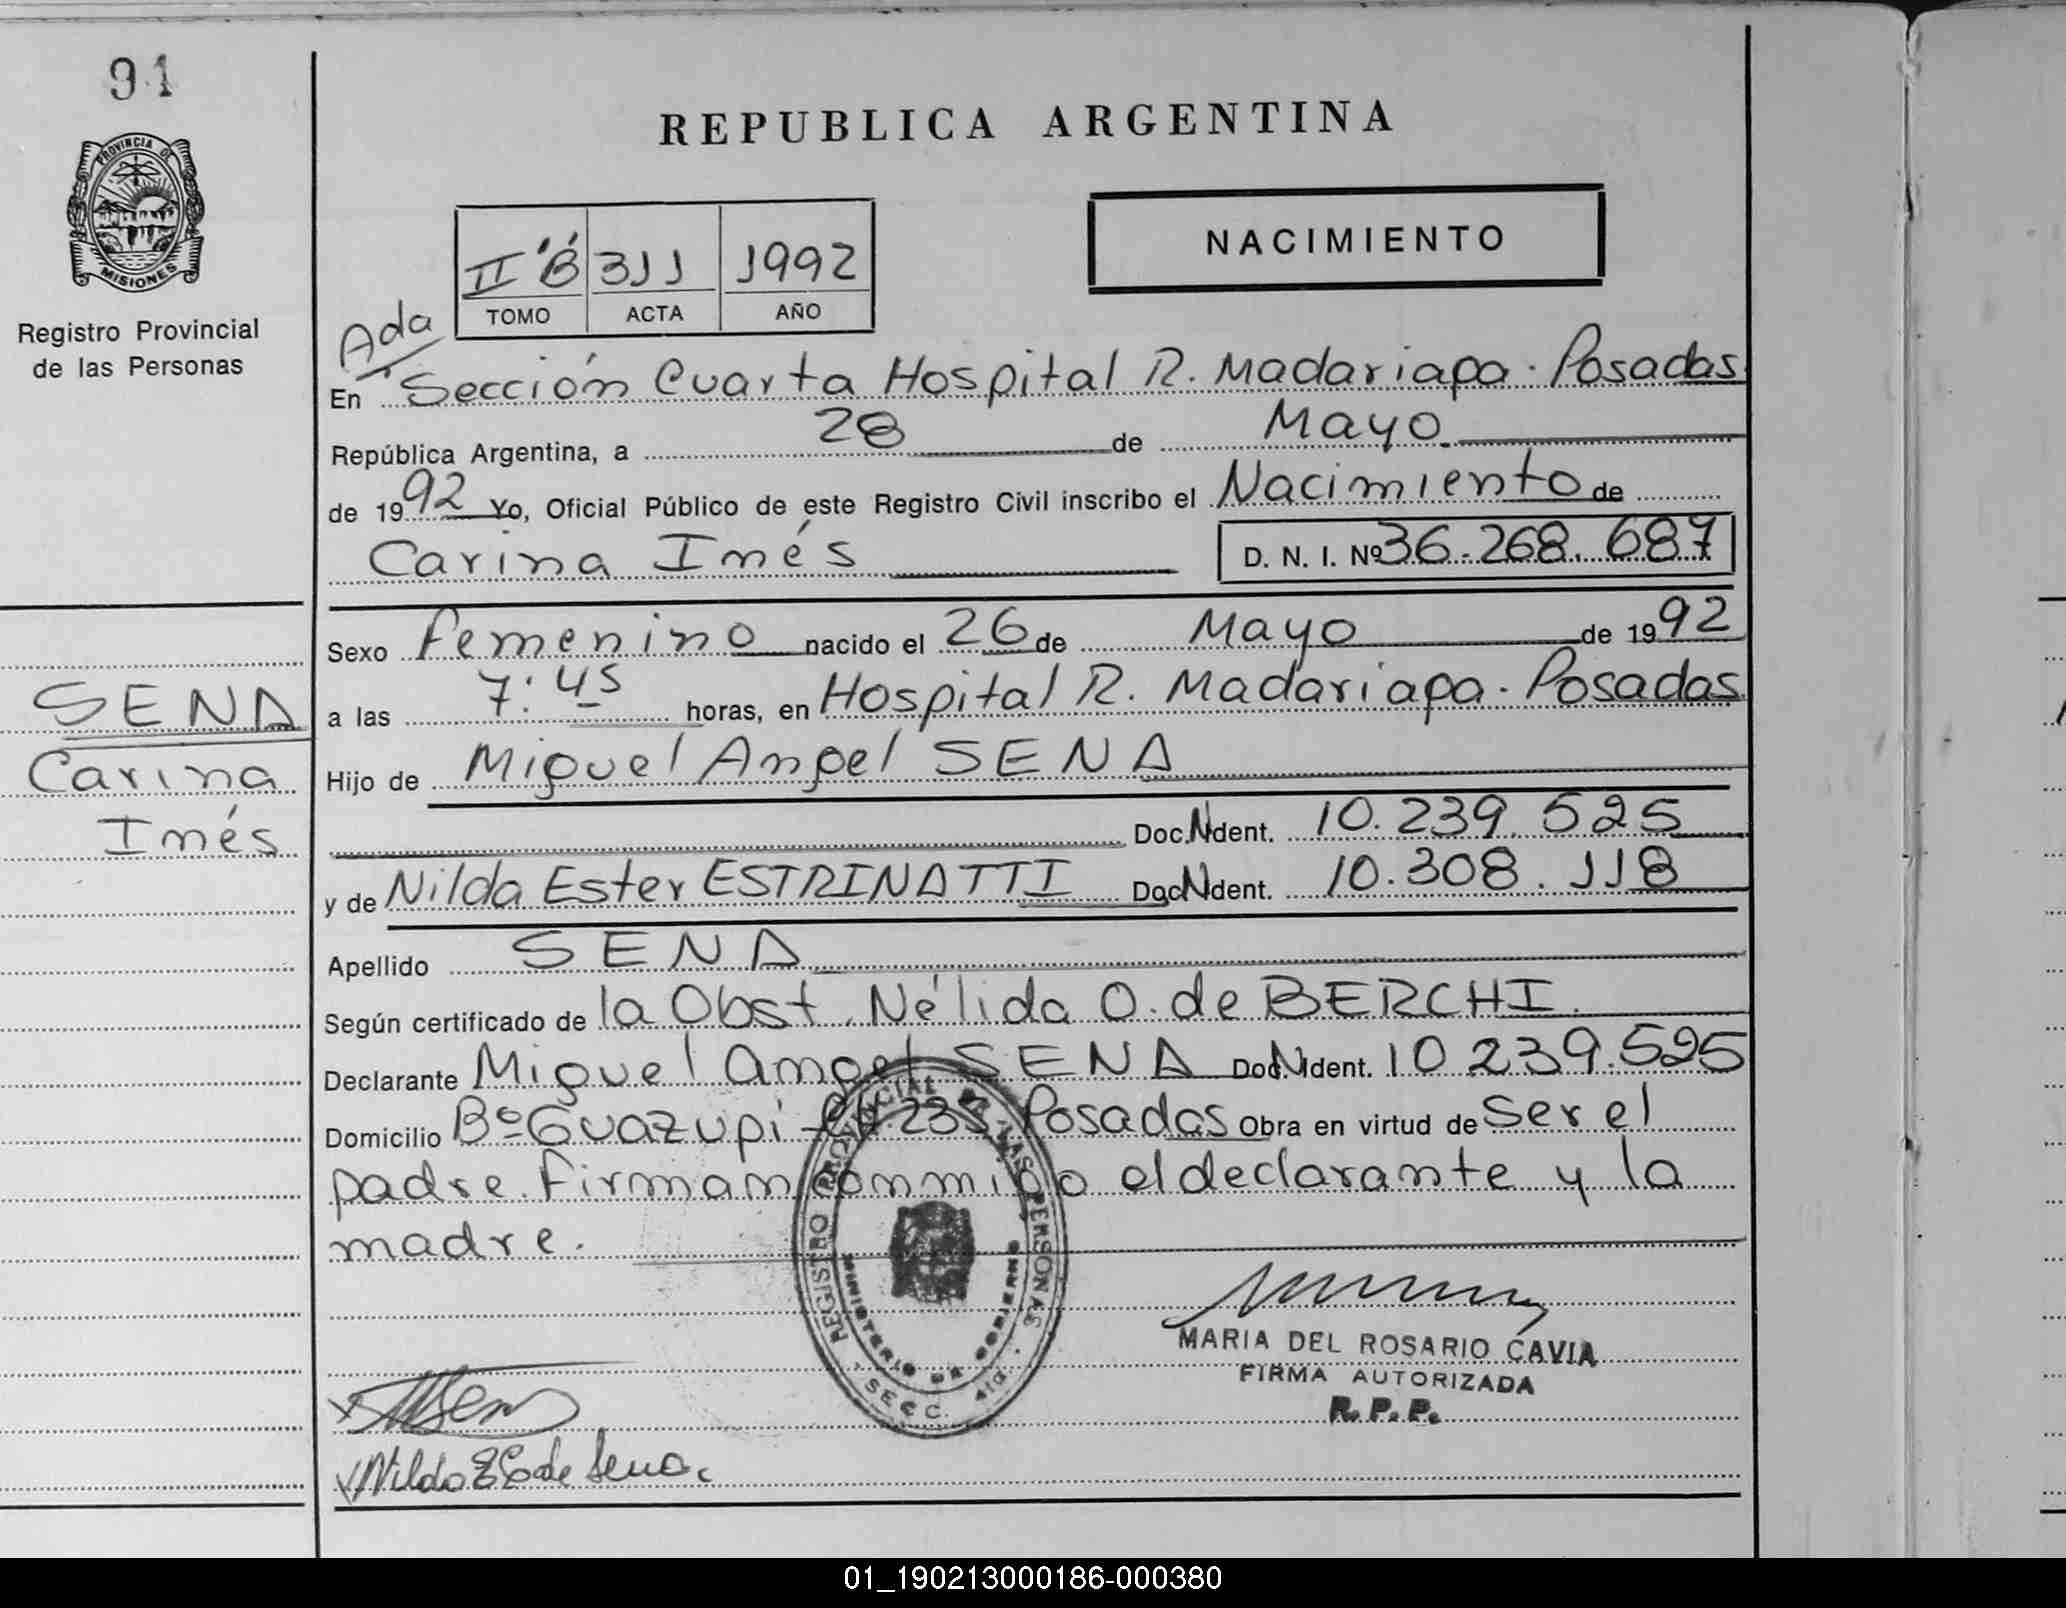 91
PROVINCIA DE
MISIONES
Registro Provincial
de las Personas
SENA
Carina
Inés
REPUBLICA ARGENTINA
II "B" 311 1992
TOMO ACTA AÑO
NACIMIENTO
Ada
En Sección Cuarta Hospital R. Madariaga. Posadas
República Argentina, a 28 de Mayo
de 1992 Yo, Oficial Público de este Registro Civil inscribo el Nacimiento de
Carina Inés D. N. I. Nº 36.268.687
Sexo Femenino nacido el 26 de Mayo de 1992
a las 7:45 horas, en Hospital R. Madariaga. Posadas
Hijo de Miguel Angel SENA
Doc. N Ident. 10.239.525
y de Nilda Ester ESTRINATTI Doc. N Ident. 10.308.118
Apellido SENA
Según certificado de la Obst. Nélida O. de BERCHI.
Declarante Miguel Angel SENA Doc. N Ident. 10.239.525
Domicilio Bº Guazupi - 235 Posadas Obra en virtud de Ser el
padre. Firman conmigo el declarante y la
madre.
REGISTRO PROVINCIAL DE LAS PERSONAS
MINISTERIO DE GOBIERNO
SECC. 4ta.
MARIA DEL ROSARIO CAVIA
FIRMA AUTORIZADA
R. P. P.
Nilda E de Sena
01_190213000186-000380